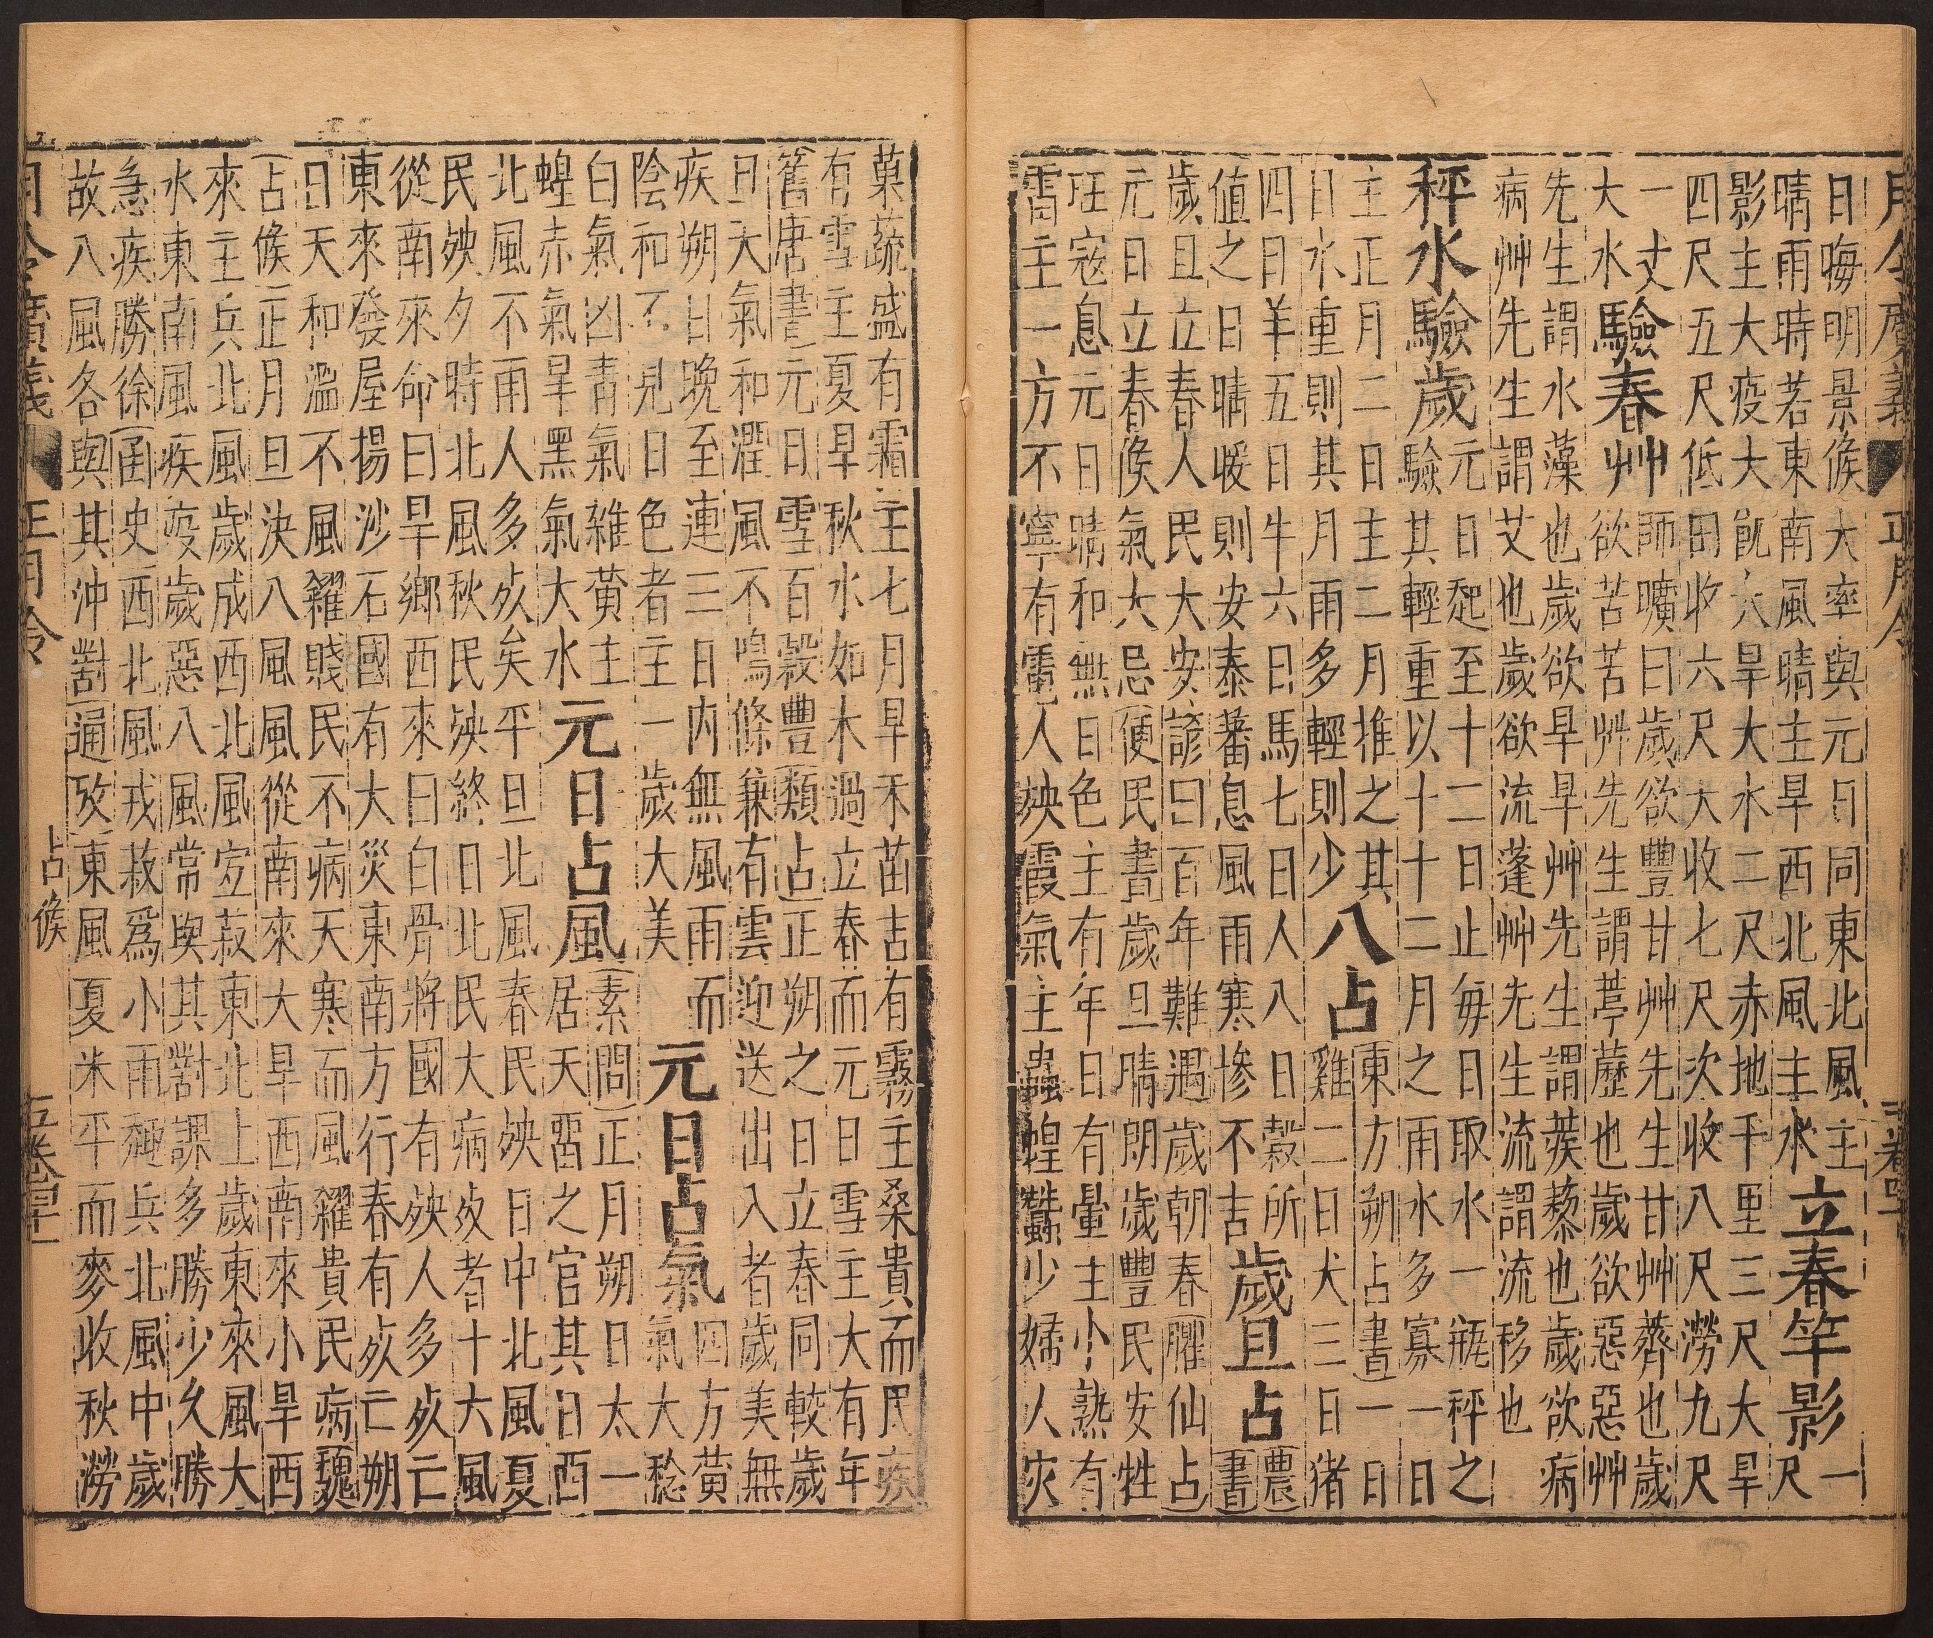 月令廣義 正月令 五卷四十
日晦明景候大率與元日同東北風主
晴雨時若東南風晴主旱西北風主水
立春竿影
一尺
影主大疫大飢大旱大水二尺赤地千里三尺大旱
四尺五尺低田收六尺大收七尺次收八尺澇九尺
一丈
大水
驗春艸
師曠曰歲欲豐甘艸先生甘艸薺也歲
欲苦苦艸先生謂葶藶也歲欲惡惡艸
先生謂水藻也歲欲旱旱艸先生謂蒺藜也歲欲病
病艸先生謂艾也歲欲流蓬艸先生流謂流移也
秤水驗歲
元日起至十二日止每日取水一瓶秤之
驗其輕重以十十二月之雨水多寡一日
主正月二日主二月推之其
日水重則其月雨多輕則少
八占
東方朔占書一日
雞二日犬三日猪
四日羊五日牛六日馬七日人八日穀所
值之日晴暖則安泰蕃息風雨寒慘不吉
歲旦占
農
書
歲旦立春人民大安諺曰百年難遇歲朝春臞仙占
元日立春候氣大忌便民書歲旦晴朗歲豐民安牲
旺寇息元日晴和無日色主有年日有暈主小熟有
雷主一方不寧有電人殃霞氣主蟲蝗蠶少婦人灾
菓蔬盛有霜主七月旱禾苗吉有霧主桑貴而民疾
有雪主夏旱秋水如水過立春而元日雪主大有年
舊唐書元日雪百穀豐類占正朔之日立春同較歲
日大氣和潤風不鳴條兼有雲迎送出入者歲美無
疾朔日晚至連三日內無風雨而
陰和不見日色者主一歲大美
元日占氣
四方黃
氣大稔
白氣凶青氣雜黃主
蝗赤氣旱黑氣大水
元日占風
素問正月朔日太一
居天留之官其日西
北風不雨人多死矣平旦北風春民殃日中北風夏
民殃夕時北風秋民殃終日北民大病死者十六風
從南來命曰旱鄉西來曰白骨將國有殃人多死亡
東來發屋揚沙石國有大災東南方行春有死亡朔
日天和溫不風糴賤民不病天寒而風糴貴民病魏
占候正月旦決八風風從南來大旱西南來小旱西
來主兵北風歲成西北風宜菽東北上歲東來風大
水東南風疾疫歲惡八風常與其對課多勝少久勝
急疾勝徐函史西北風戎菽爲小雨趣兵北風中歲
故八風各與其沖對通攷東風夏米平而麥收秋澇
月令廣義 正月令 占候 五卷四十一